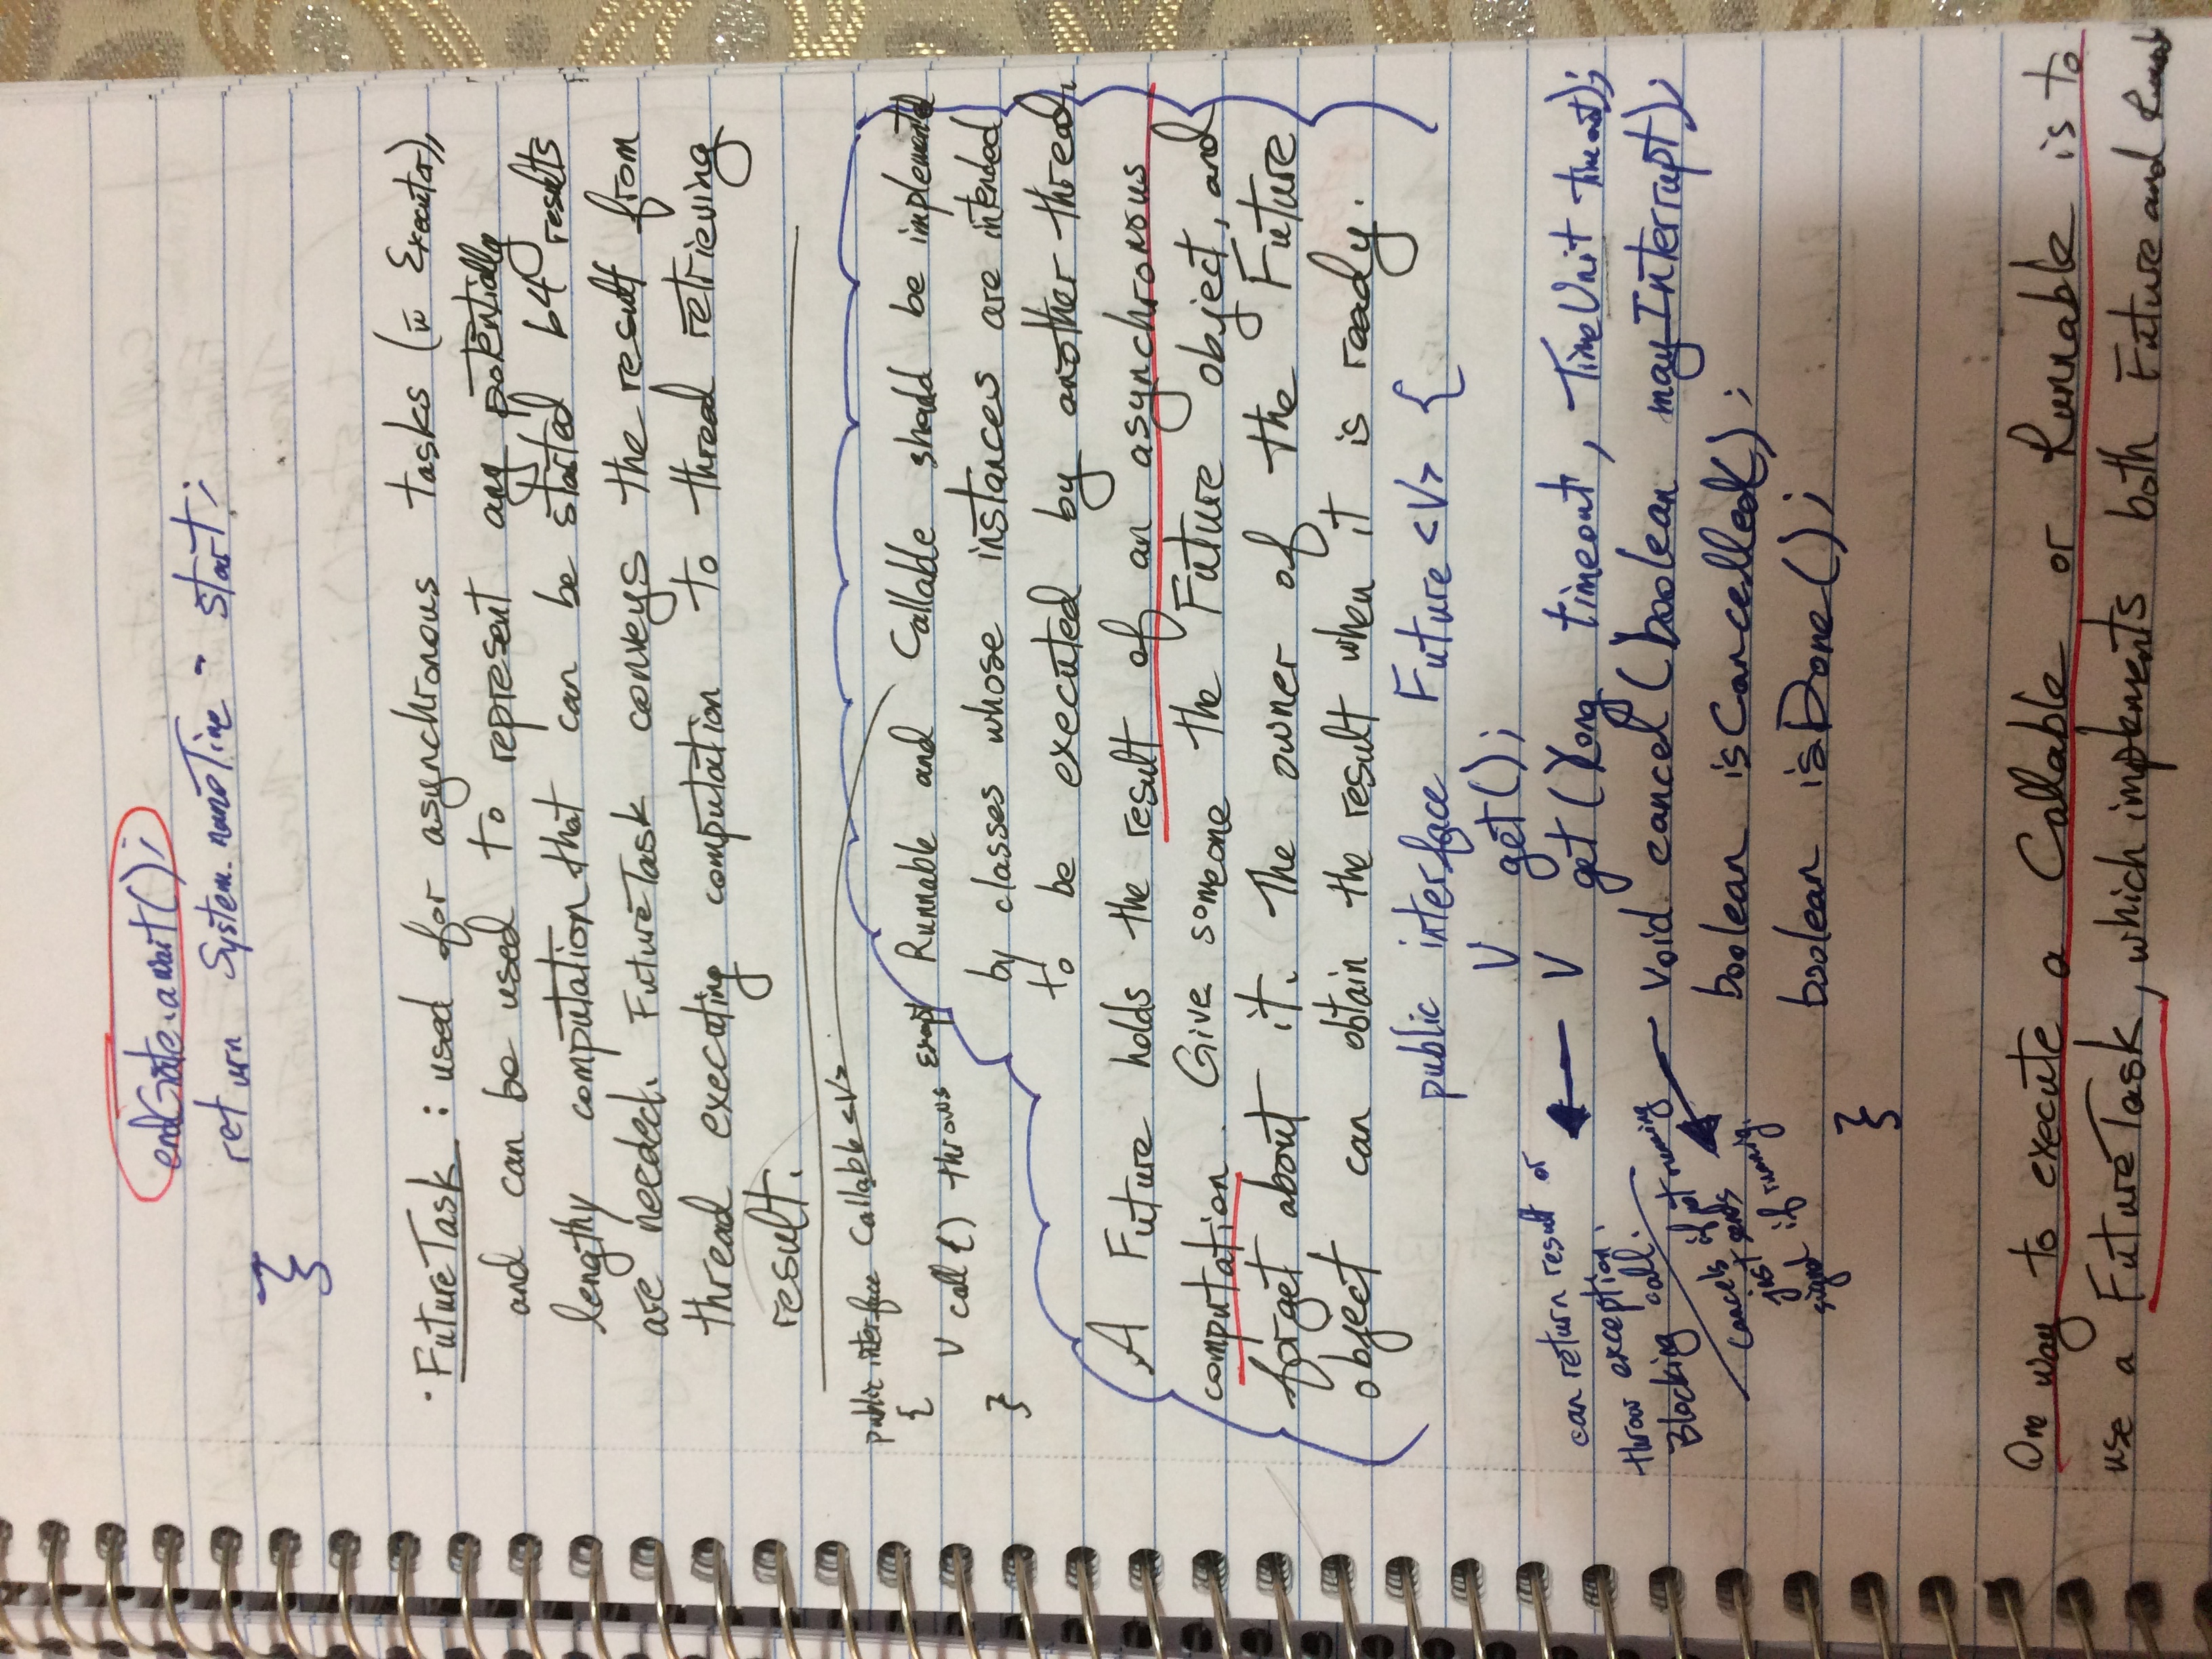 endGate.await();
return System.nanoTime - start;
}
· FutureTask : used for asynchronous tasks (in Executor),
and can be used to represent any potentially
lengthy computation that can be started b4 results
are needed. FutureTask conveys the result from
thread executing computation to thread retrieving
result.
public interface Callable <V>
{
V call () throws Except
}
Runnable and Callable should be implemented
by classes whose instances are intended
to be executed by another thread.
A Future holds the result of an asynchronous
computation. Give someone the Future object, and
forget about it. The owner of the Future
object can obtain the result when it is ready.
public interface Future <V> {
V get();
V get (long timeout, TimeUnit timeout);
void cancel (boolean mayInterrupt);
boolean isCancelled();
boolean isDone();
}
can return result or
throw exception.
Blocking call.
cancels if not running
just sends
signal if runnig.
One way to execute a Callable or Runnable is to
use a FutureTask, which implements both Future and